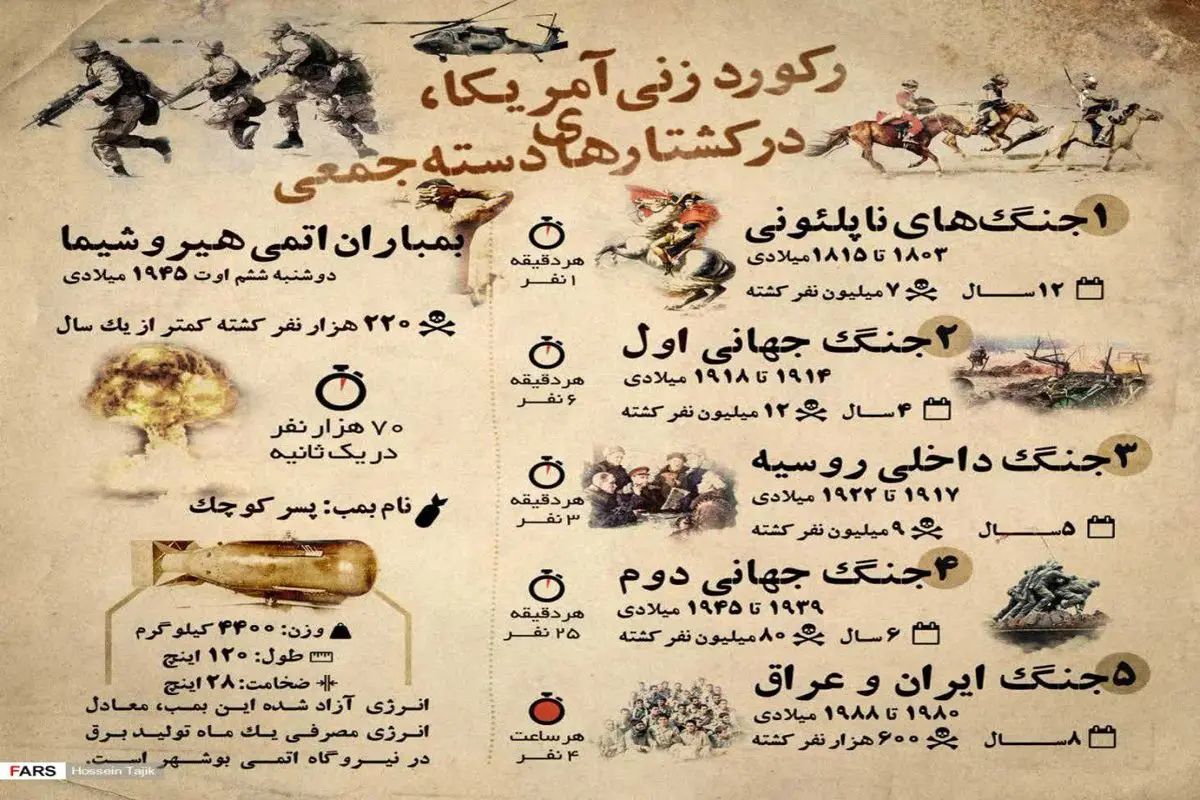 رکورد زنی آمریکا،
در کشتارهای دسته جمعی
۱ جنگ‌های ناپلئونی
۱۸۰۳ تا ۱۸۱۵ میلادی
۱۲ ســـال
۷ میلیون نفر کشته
هر دقیقه
۱ نفـر
۲ جنگ جهانی اول
۱۹۱۴ تا ۱۹۱۸ میلادی
۴ سـال
۱۲ میلیون نفر کشته
هر دقیقه
۶ نفـر
۳ جنگ داخلی روسیه
۱۹۱۷ تا ۱۹۲۲ میلادی
۵ ســـال
۹ میلیون نفر کشته
هر دقیقه
۳ نفـر
۴ جنگ جهانی دوم
۱۹۳۹ تا ۱۹۴۵ میلادی
۶ سال
۸۰ میلیون نفر کشته
هر دقیقه
۲۵ نفـر
۵ جنگ ایران و عراق
۱۹۸۰ تا ۱۹۸۸ میلادی
۸ ســـال
۶۰۰ هزار نفر کشته
هر ساعت
۴ نفـر
بمباران اتمی هیروشیما
دوشنبه ششم اوت ۱۹۴۵ میلادی
۲۲۰ هزار نفر کشته کمتر از یک سال
۷۰ هزار نفر
در یک ثانیه
نام بمب: پسر کوچک
وزن: ۴۴۰۰ کیلوگرم
طول: ۱۲۰ اینچ
ضخامت: ۲۸ اینچ
انرژی آزاد شده این بمب، معادل
انرژی مصرفی یک ماه تولید برق
در نیروگاه اتمی بوشهر است.
FARS Hossein Tajik